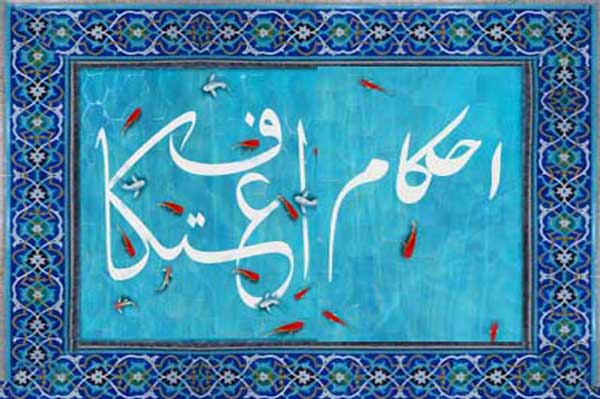 احکام اعتکاف